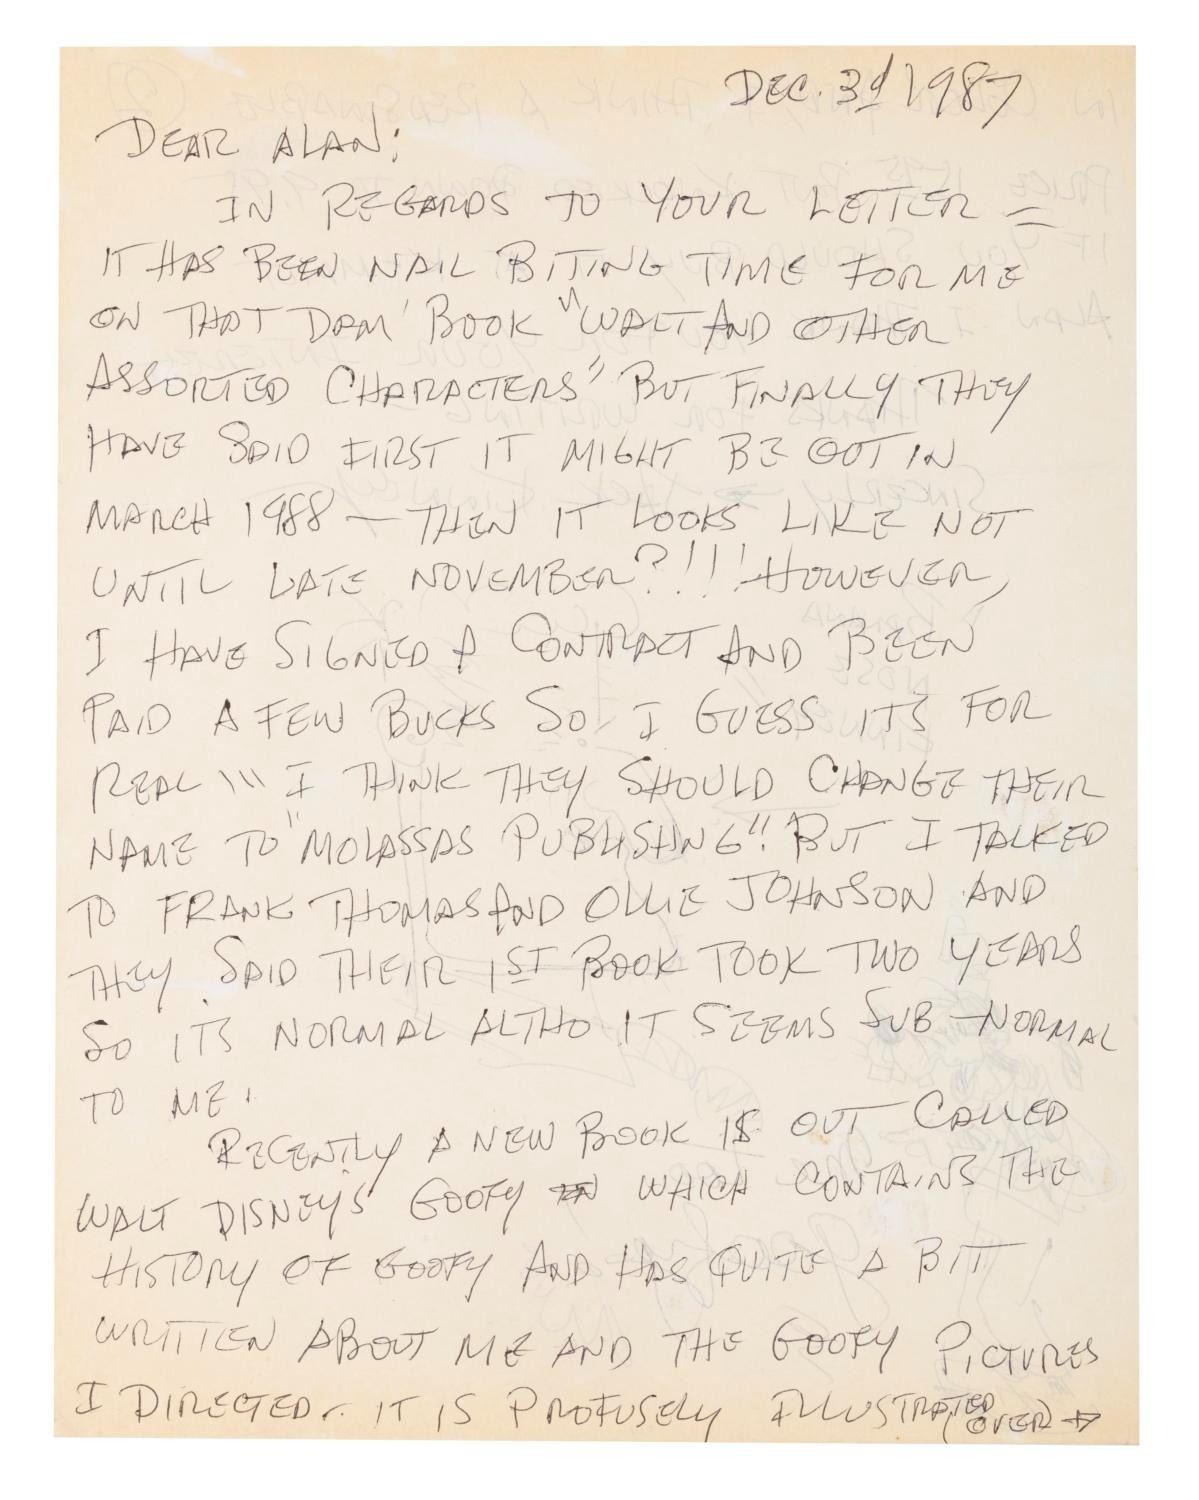 DEC. 3d 1987
DEAR ALAN:
IN REGARDS TO YOUR LETTER =
IT HAS BEEN NAIL BITING TIME FOR ME
ON THAT DAM' BOOK "WALT AND OTHER
ASSORTED CHARACTERS" BUT FINALLY THEY
HAVE SAID FIRST IT MIGHT BE OUT IN
MARCH 1988 — THEN IT LOOKS LIKE NOT
UNTIL LATE NOVEMBER?!!! HOWEVER,
I HAVE SIGNED A CONTRACT AND BEEN
PAID A FEW BUCKS SO I GUESS ITS FOR
REAL \\\ I THINK THEY SHOULD CHANGE THEIR
NAME TO "MOLASSAS PUBLISHNG"! BUT I TALKED
TO FRANK THOMAS AND OLLIE JOHNSON AND
THEY SAID THEIR 1ST BOOK TOOK TWO YEARS
SO ITS NORMAL ALTHO IT SEEMS SUB-NORMAL
TO ME.
RECENTLY A NEW BOOK IS OUT CALLED
WALT DISNEY'S GOOFY WHICH CONTAINS THE
HISTORY OF GOOFY AND HAS QUITE A BIT
WRITTEN ABOUT ME AND THE GOOFY PICTURES
I DIRECTED.. IT IS PROFUSELY ILLUSTRATED
(OVER) →